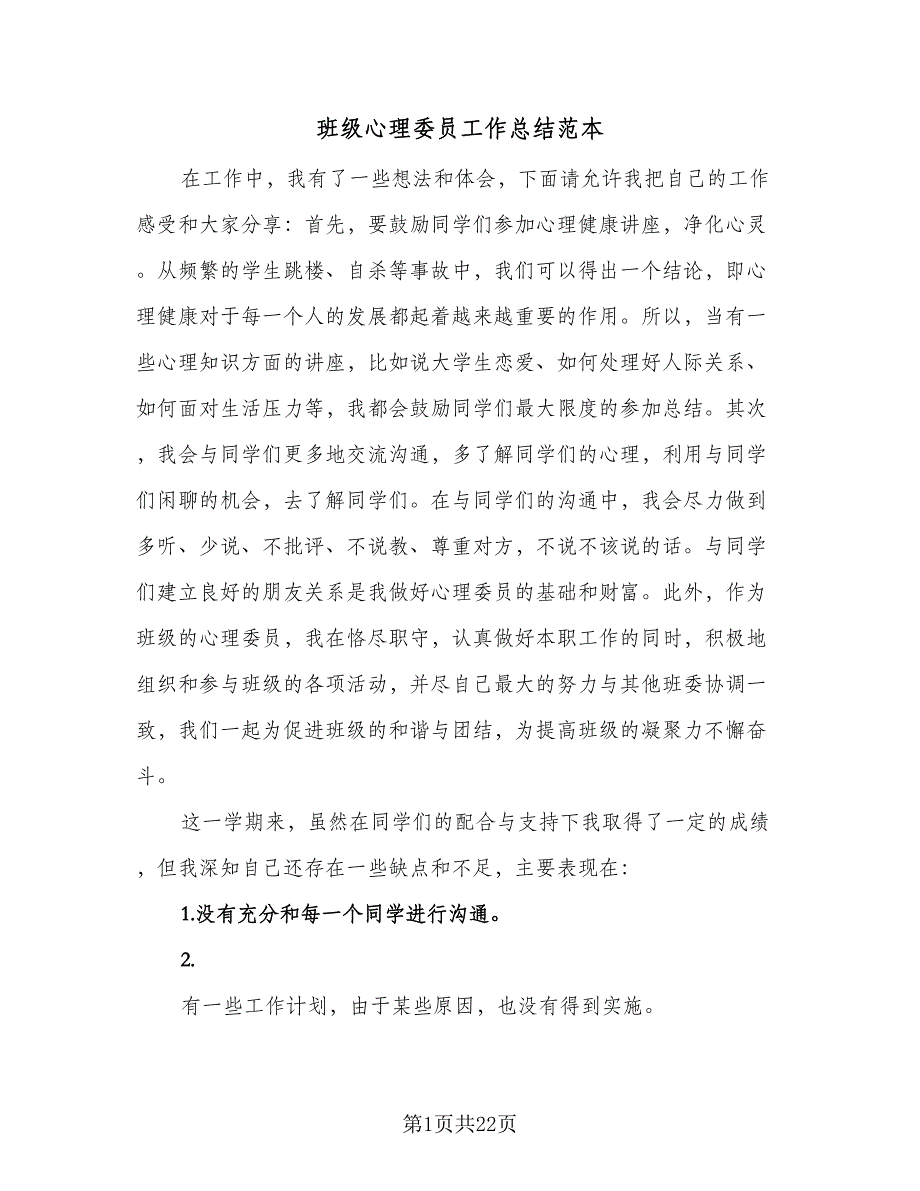 班级心理委员工作总结范本
在工作中，我有了一些想法和体会，下面请允许我把自己的工作
感受和大家分享：首先，要鼓励同学们参加心理健康讲座，净化心灵
。从频繁的学生跳楼、自杀等事故中，我们可以得出一个结论，即心
理健康对于每一个人的发展都起着越来越重要的作用。所以，当有一
些心理知识方面的讲座，比如说大学生恋爱、如何处理好人际关系、
如何面对生活压力等，我都会鼓励同学们最大限度的参加总结。其次
，我会与同学们更多地交流沟通，多了解同学们的心理，利用与同学
们闲聊的机会，去了解同学们。在与同学们的沟通中，我会尽力做到
多听、少说、不批评、不说教、尊重对方，不说不该说的话。与同学
们建立良好的朋友关系是我做好心理委员的基础和财富。此外，作为
班级的心理委员，我在恪尽职守，认真做好本职工作的同时，积极地
组织和参与班级的各项活动，并尽自己最大的努力与其他班委协调一
致，我们一起为促进班级的和谐与团结，为提高班级的凝聚力不懈奋
斗。
这一学期来，虽然在同学们的配合与支持下我取得了一定的成绩
，但我深知自己还存在一些缺点和不足，主要表现在：
1.没有充分和每一个同学进行沟通。
2.
有一些工作计划，由于某些原因，也没有得到实施。
第1页共22页